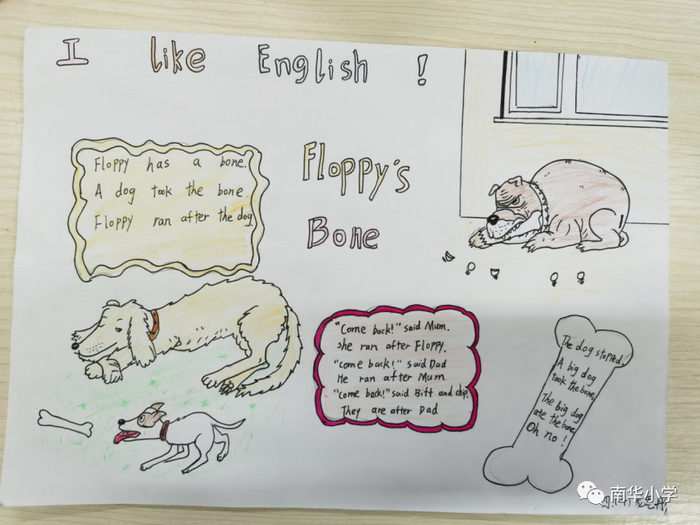 I like English !
Floppy has a bone.
A dog took the bone
Floppy ran after the dog
Floppy's
Bone
"Come back!" said Mum.
She ran after Floppy.
"come back!" said Dad
He ran after Mum
"come back!" said Biff and chip.
They are after Dad
The dog stopped
A big dog
took the bone
The big dog
ate the bone
Oh no !
南华小学